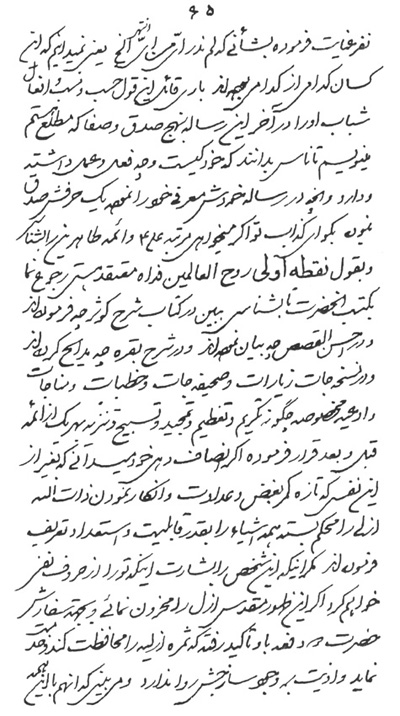 ۶۵
نفر عنایت فرموده بشأنی که لم ندر یعنی نمیدانم که این
کسان کدامی از کدامی باری قائل این قول حسب و نسب و افعال
شباب او را در آخر این رساله بنهج صدق و صفا که مطلع هستم
مینویسم تا ناس بدانند که خود کیست و چه فعلی و عملی داشته
و دارد و آنچه در رساله خودش معرفی خود را نموده یک حرفش صدق
نبوده بگو ای کذاب تو اگر میخواهی مرتبه و ائمه طاهرین را بشناسی
و بقول نقطه اولی روح العالمین فداه معتقد هستی رجوع نما
بکتب آنحضرت تا بشناسی ببین در کتاب شرح کوثر چه فرموده‌اند
و در احسن القصص چه بیان نموده‌اند و در شرح بقره چه مدایح کرده‌اند
و در نسخجات زیارات و صحیفه جات و خطبات و مناجات
و ادعیه مخصوصه چگونه تکریم و تعظیم و تمجید و تسبیح و تنزیه هر یک از ائمه
قبل و بعد قرار فرموده اگر انصاف دهی خود میدانی که بغیر از
این نفسی که تازه کمر بغض و عداوت و انکار نمودن ذات الله
ازلی را محکم بسته همه اشیاء را بقدر قابلیت و استعداد تعریف
فرموده‌اند مگر اینکه این شخص را بشارت اینکه تو را از حروف نفی
خواهم کرد اگر این ظهور مقدس ازل را محزون نمائی و بجهة سفارش
حضرت دفعه باو تأکید رفته که ثمره ازلیه را محافظت کند و
نماید و اذیت بر وجود سازجش روا ندارد و می‌بینی که آنهم باین